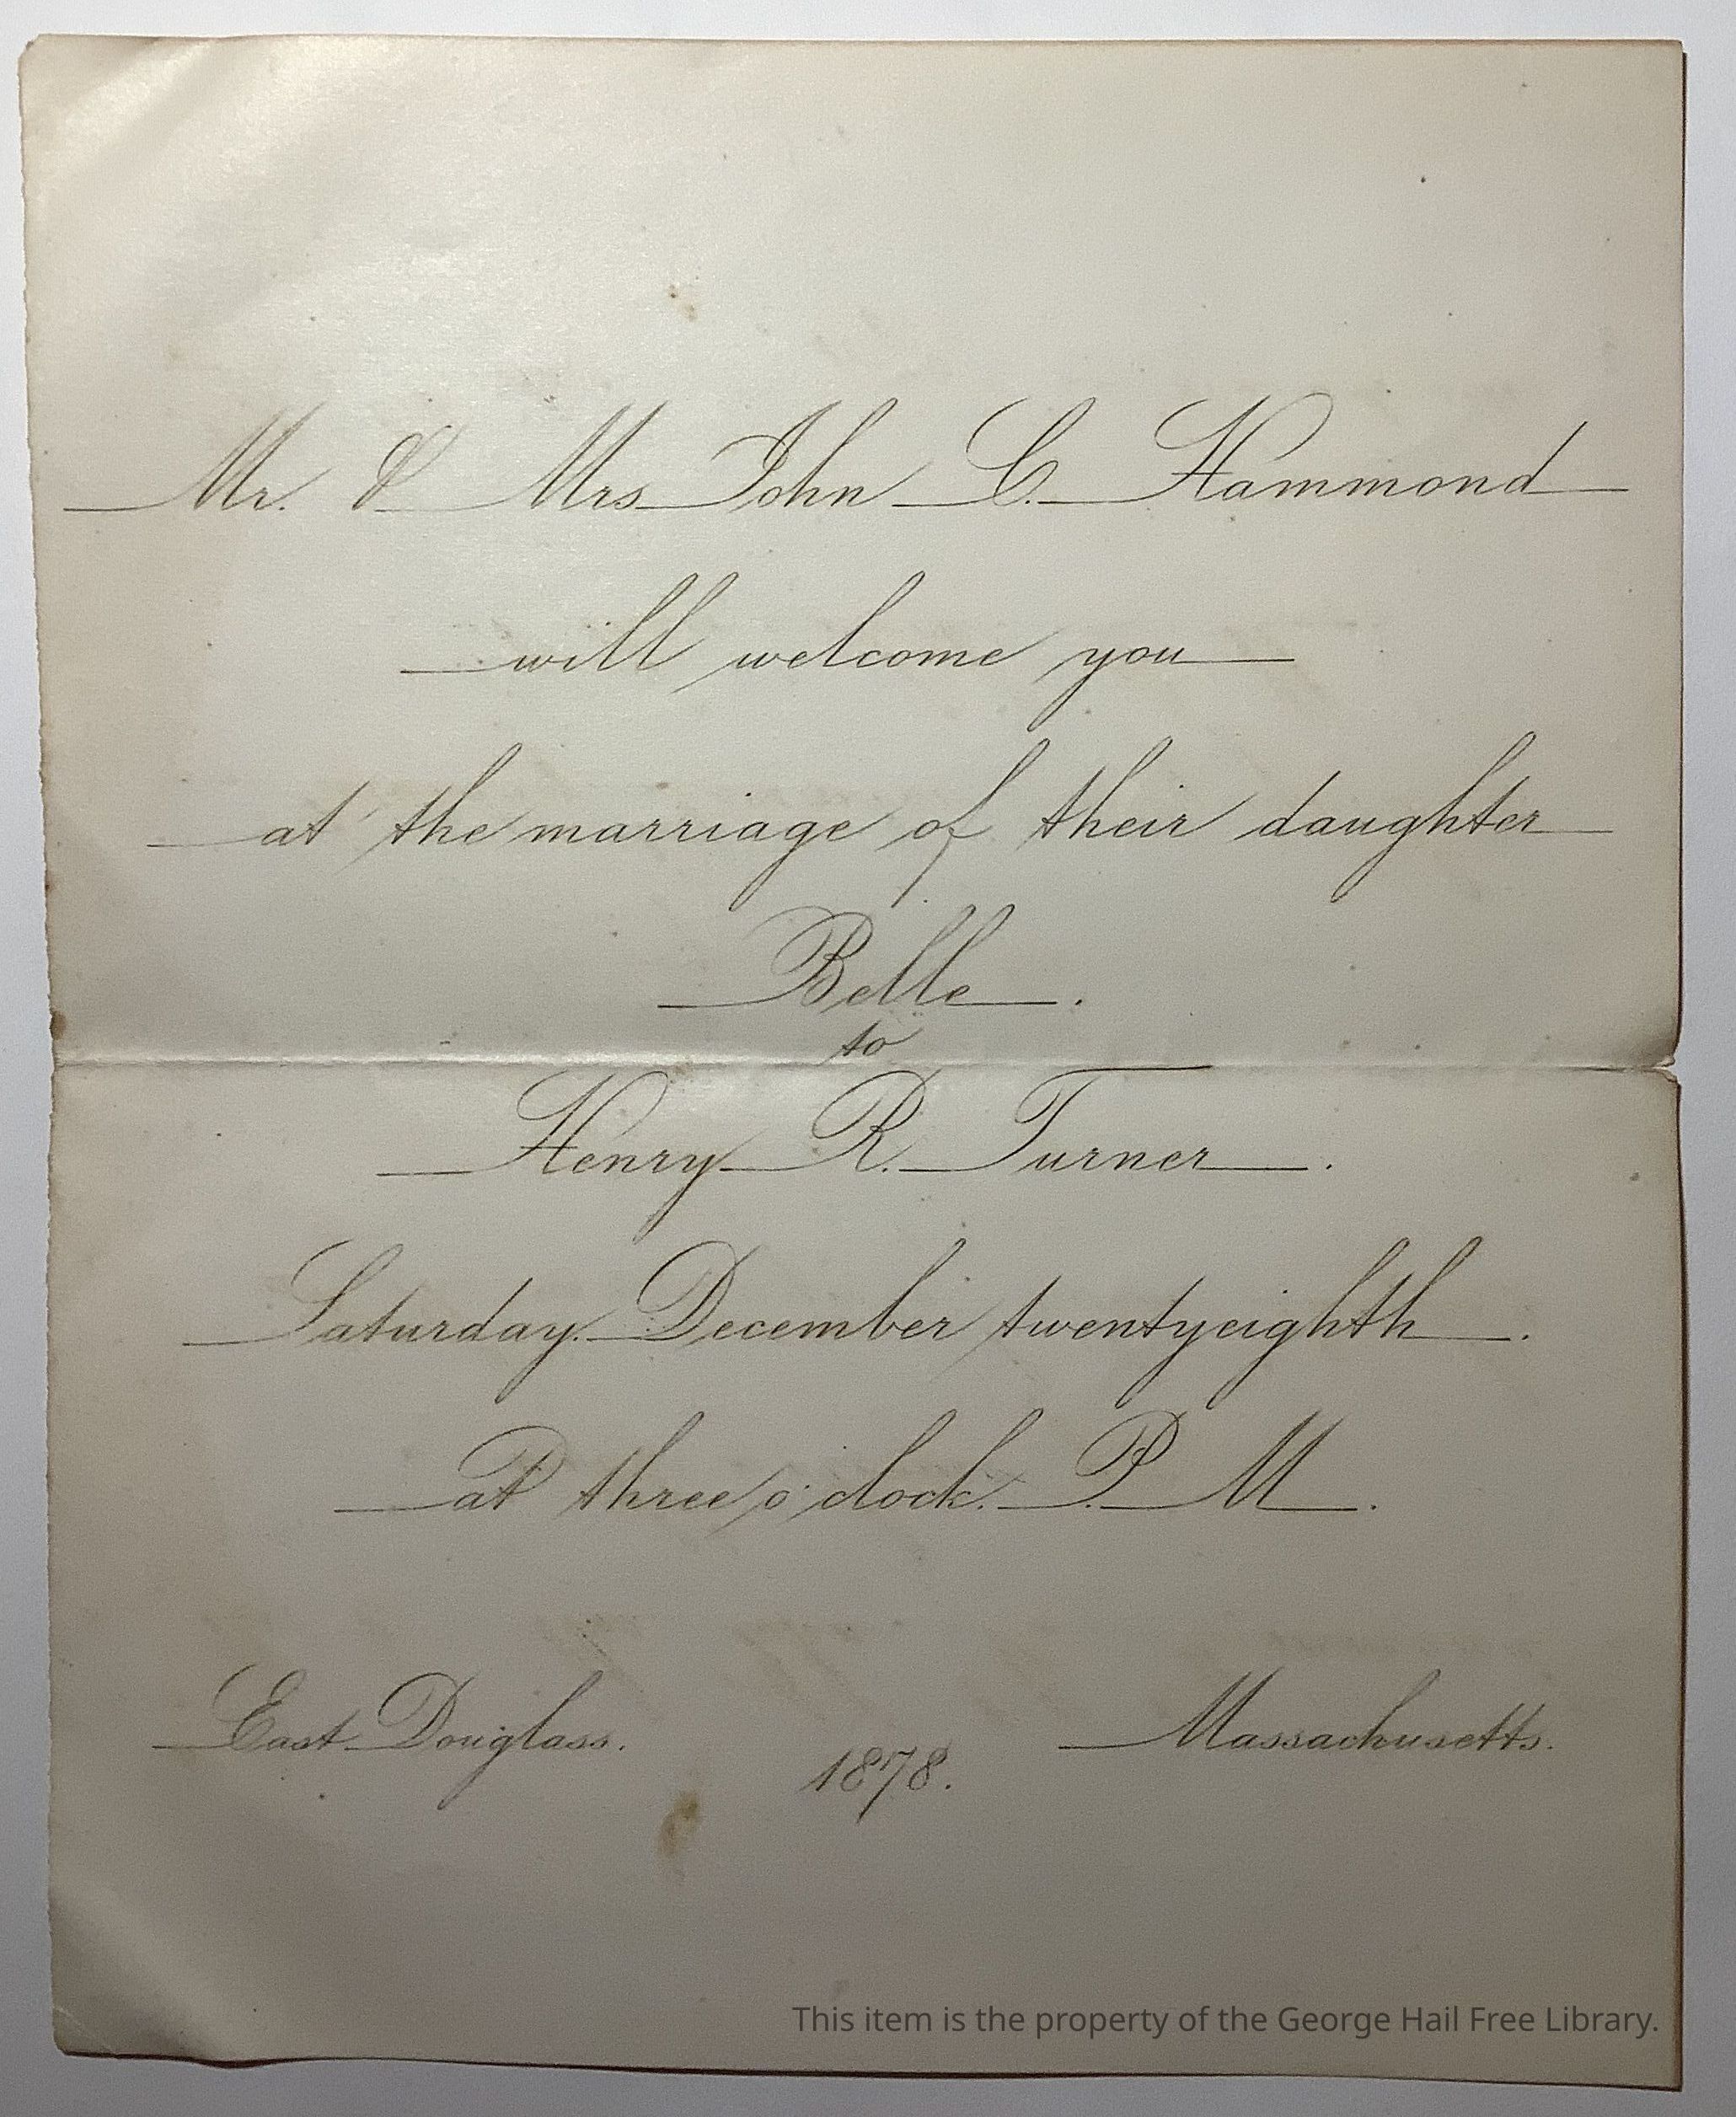 Mr. & Mrs John C. Hammond
will welcome you
at the marriage of their daughter
Belle.
to
Henry R. Turner.
Saturday. December twentyeighth.
at three o'clock. P. M.
East Douglass. Massachusetts.
1878.
This item is the property of the George Hail Free Library.